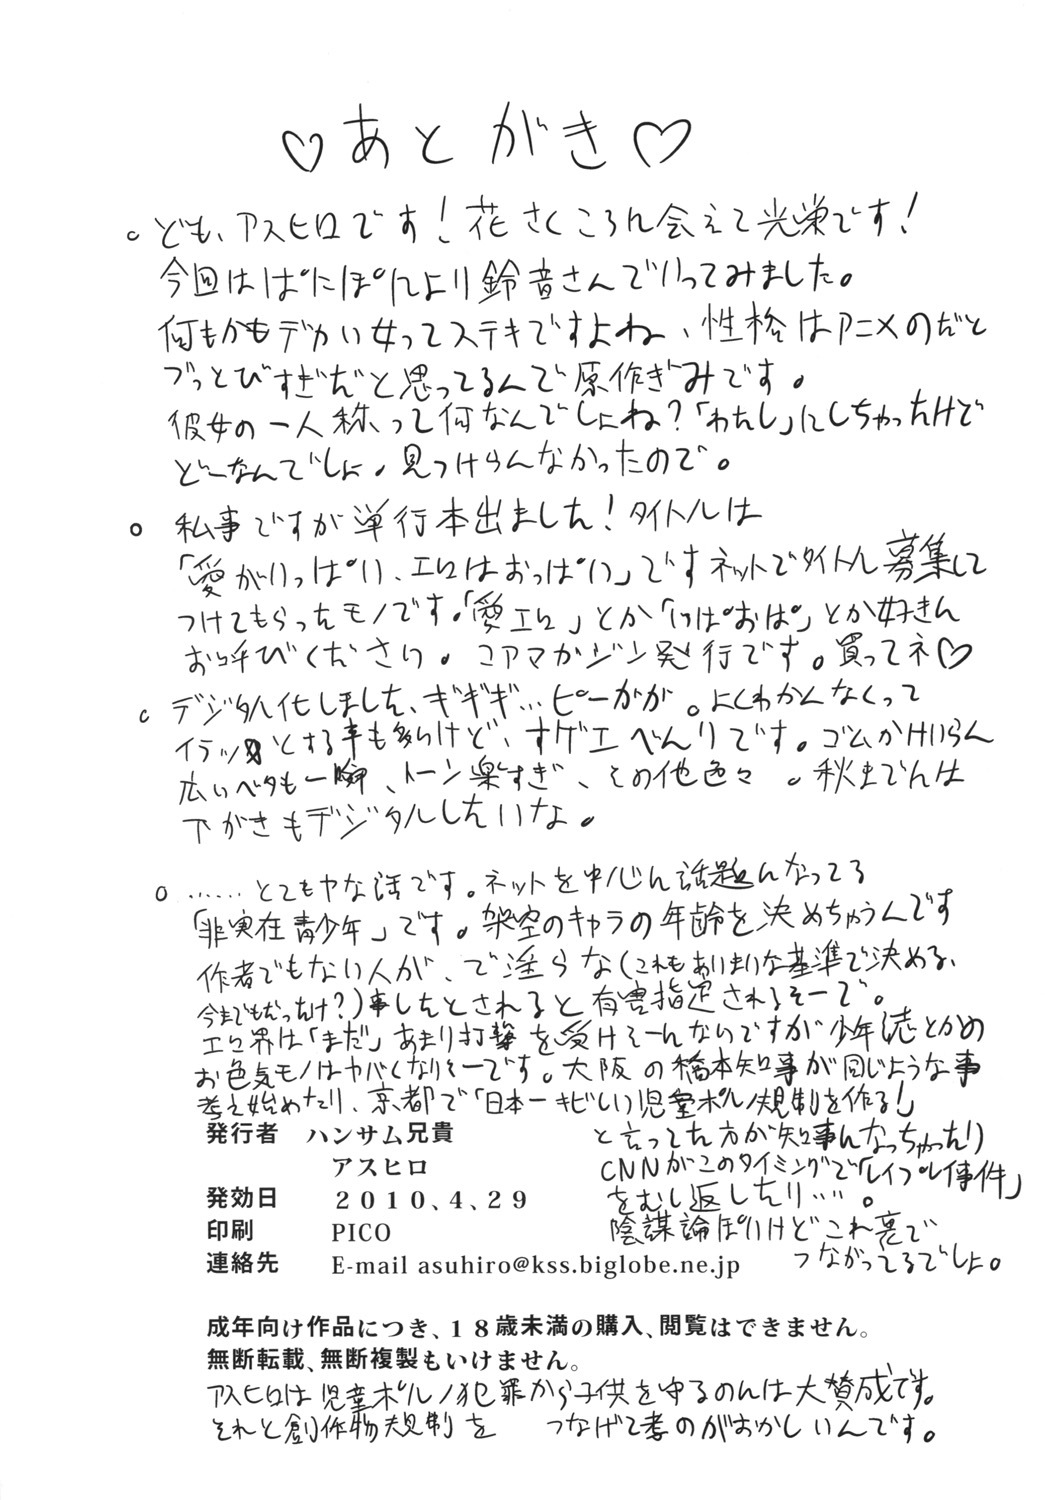 ♡あとがき♡
ども、アスヒロです!花さくころに会えて光栄です!
今回はぱにぽにより鈴音さんでいってみました。
何もかもデカい女ってステキですよね、性格はアニメのだと
ブっとびすぎだと思ってるんで原作ぎみです。
彼女の一人称って何なんでしょね?「わたし」にしちゃったけど
どーなんでしょ。見つけらんなかったので。
私事ですが単行本出ました!タイトルは
「愛がいっぱい、エロはおっぱい」ですネットでタイトル募集して
つけてもらったモノです。「愛エロ」とか「いぱおぱ」とか好きに
お呼びください。コアマガジン発行です。買ってネ♡
デジタル化しました、ギギギ…ピーガガ。よくわかんなくって
イラッとする事も多いけど、すゲエべんりです。ゴムかけいらん
広いベタも一瞬、トーン楽すぎ、その他色々。秋までんは
下がきもデジタルしたいな。
……とてもヤな話です。ネットを中心に話題になってる
「非実在青少年」です。架空のキャラの年齢を決めちゃうんです
作者でもない人が、で淫らな(これもあいまいな基準で決める、
今までもだっけ?)事したとされると有害指定されるそーで。
エロ界は「まだ」あまり打撃を受けそーんないですが少年誌とかの
お色気モノはヤバくなりそーです。大阪の橋本知事が同じような事
考え始めたり、京都で「日本一キビしい児童ポルノ規制を作る!」
と言ってた方が知事になっちゃったり
CNNがこのタイミングで「レイプレイ事件」
をむし返したり…。
陰謀論ぽいけどこれ裏で
つながってるでしょ。
発行者 ハンサム兄貴
アスヒロ
発効日 2010、4、29
印刷 PICO
連絡先 E-mail asuhiro@kss.biglobe.ne.jp
成年向け作品につき、18歳未満の購入、閲覧はできません。
無断転載、無断複製もいけません。
アスヒロは児童ポルノ犯罪から子供を守るのんは大賛成です。
それと創作物規制を つなげて考のがおかしいんです。